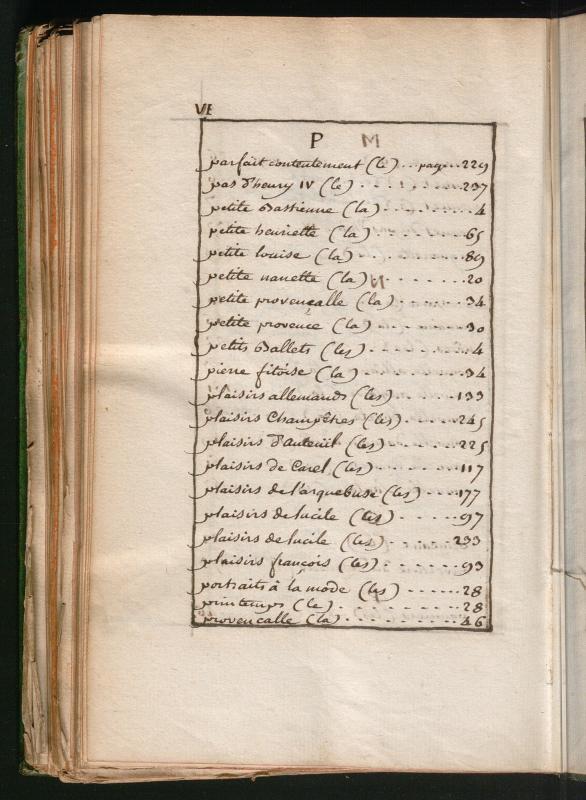 VI
P
parfait contentement (le) .. page .. 229
pas d'henry IV (le) . . . . . . 237
petite Bastienne (la) . . . . . . 4
petite henriette (la) . . . . . . 65
petite louise (la) . . . . . . 89
petite nanette (la) . . . . . . 20
petite provençalle (la) . . . . . . 34
petite provence (la) . . . . . . 30
petits Ballets (les) . . . . . . 4
pierre fitoise (la) . . . . . . 34
plaisirs allemands (les) . . . . . 133
plaisirs Champêtres (les) . . . . 245
plaisirs d'auteuil (les) . . . . . 225
plaisirs de Carel (les) . . . . . . 117
plaisirs de l'arquebuse (les) . . . . 177
plaisirs de lucile (les) . . . . . . 97
plaisirs de lucile (les) . . . . . . 233
plaisirs françois (les) . . . . . . 93
portraits à la mode (les) . . . . . . 28
printemps (le) . . . . . . . . . 28
provencalle (la) . . . . . . . . . 46